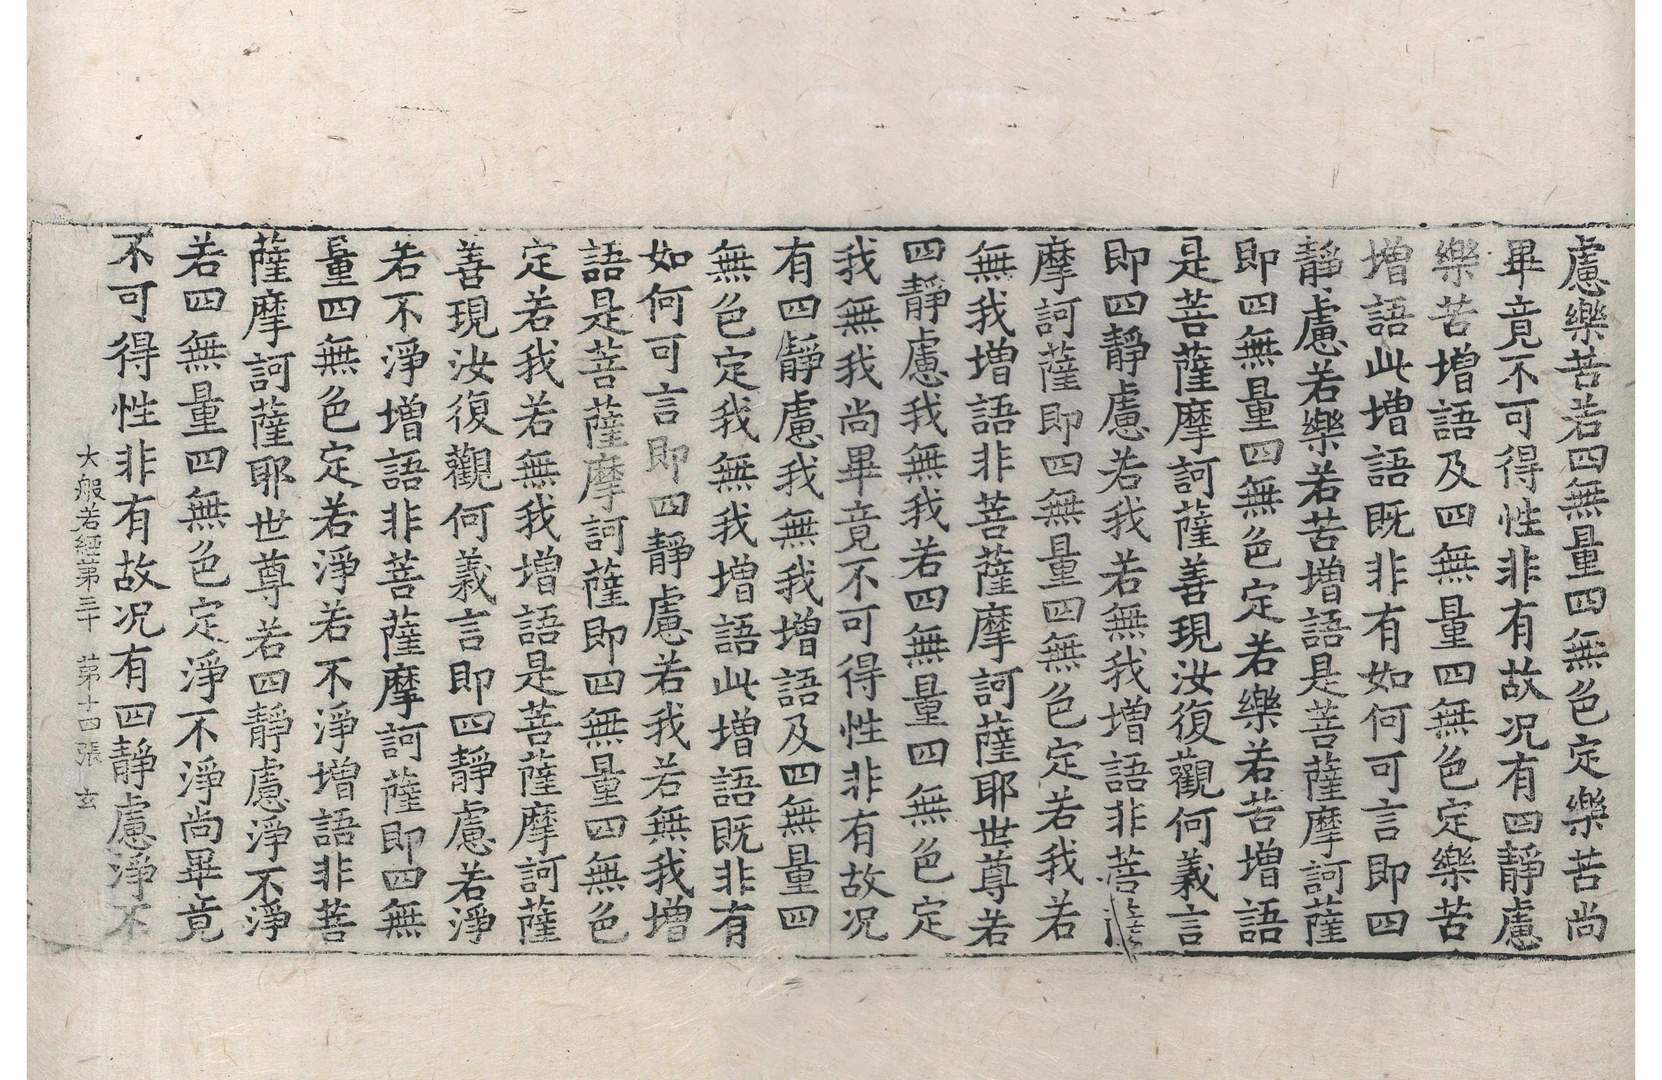 慮樂苦若四無量四無色定樂苦尚
畢竟不可得性非有故况有四靜慮
樂苦增語及四無量四無色定樂苦
增語此增語既非有如何可言即四
靜慮若樂若苦增語是菩薩摩訶薩
即四無量四無色定若樂若苦增語
是菩薩摩訶薩善現汝復觀何義言
即四靜慮若我若無我增語非菩薩
摩訶薩即四無量四無色定若我若
無我增語非菩薩摩訶薩耶世尊若
四靜慮我無我若四無量四無色定
我無我尚畢竟不可得性非有故况
有四靜慮我無我增語及四無量四
無色定我無我增語此增語既非有
如何可言即四靜慮若我若無我增
語是菩薩摩訶薩即四無量四無色
定若我若無我增語是菩薩摩訶薩
善現汝復觀何義言即四靜慮若淨
若不淨增語非菩薩摩訶薩即四無
量四無色定若淨若不淨增語非菩
薩摩訶薩耶世尊若四靜慮淨不淨
若四無量四無色定淨不淨尚畢竟
不可得性非有故况有四靜慮淨不
大般若經第三十　第十四張　玄